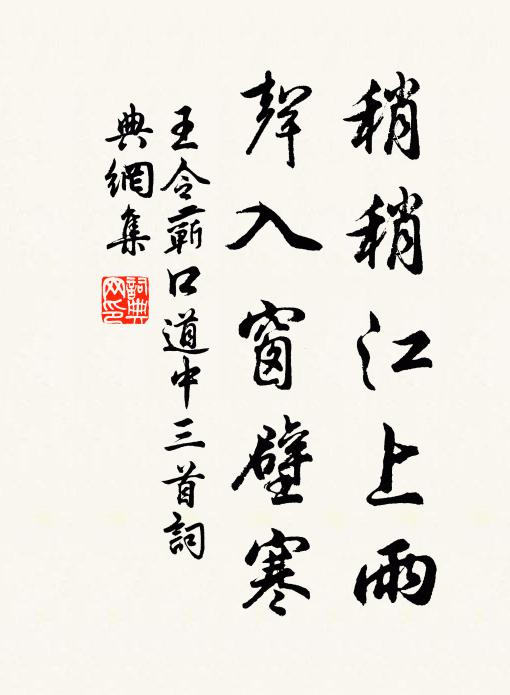 稍稍江上雨
聲入窗壁寒
王令蘄口道中三首詞
典網集
詞典
网印